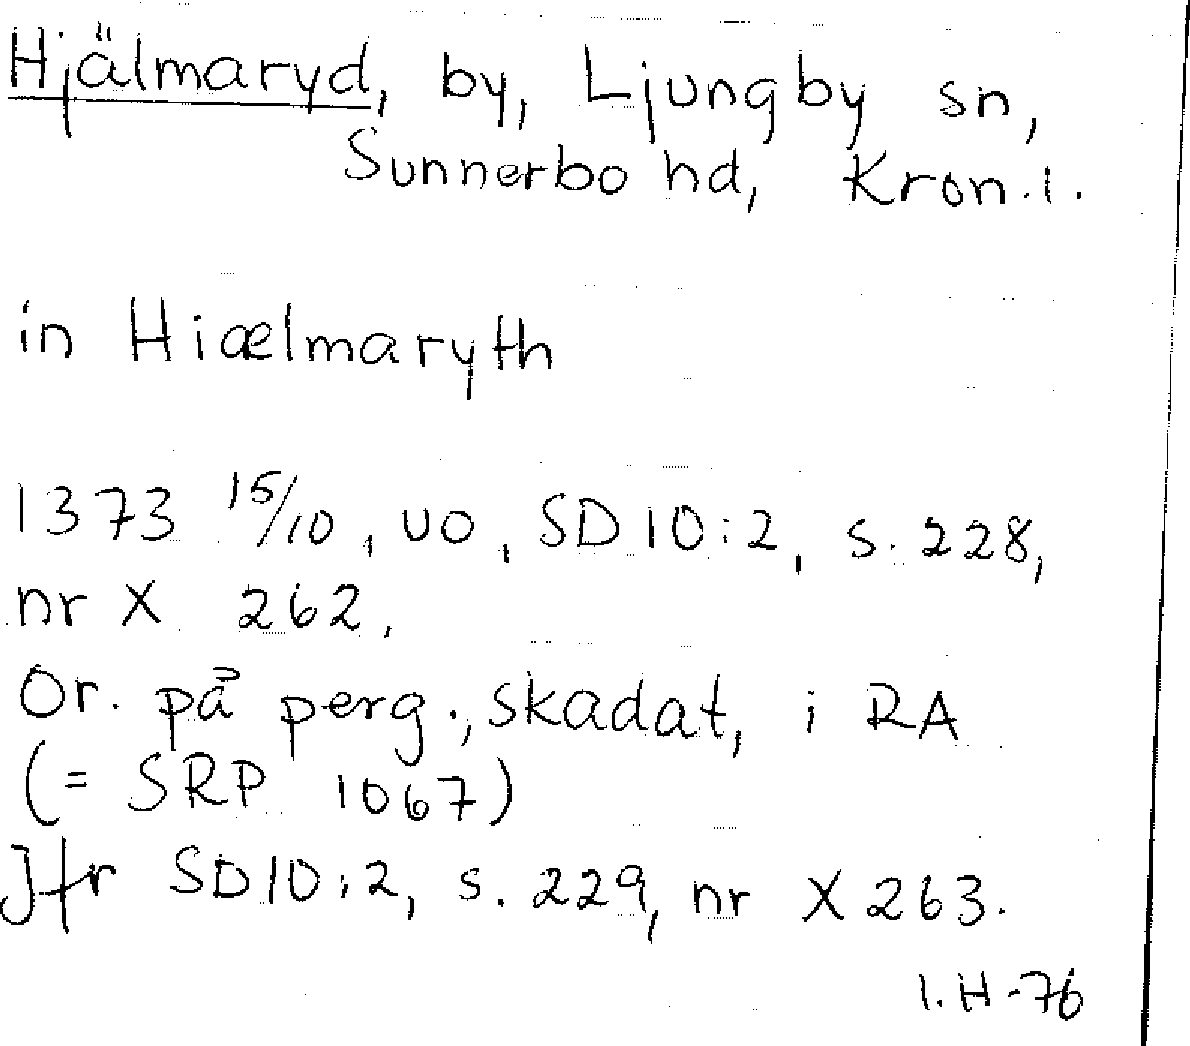 Hjälmaryd, by, Ljungby sn,
Sunnerbo hd, Kron.l.
in Hiælmaryth
1373 15/10, uo, SD 10:2, s. 228,
nr X 262,
Or. på perg., skadat, i RA
(= SRP 1067)
Jfr SD10:2, s. 229, nr X 263.
I.H-76